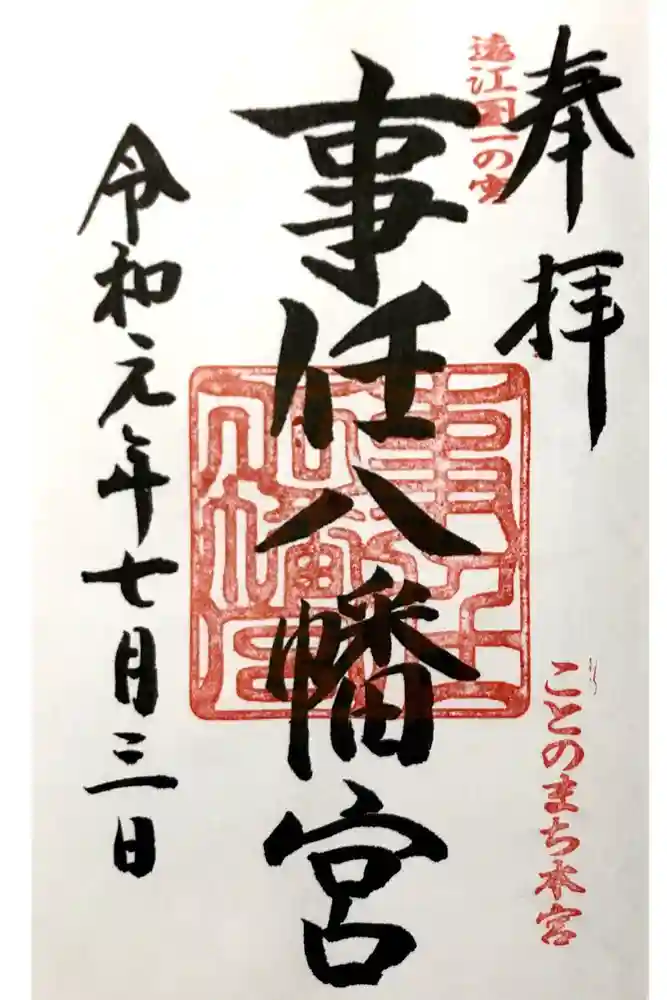 奉拝
遠江国一の宮
事任八幡宮
ことのまち本宮
令和元年七月三日